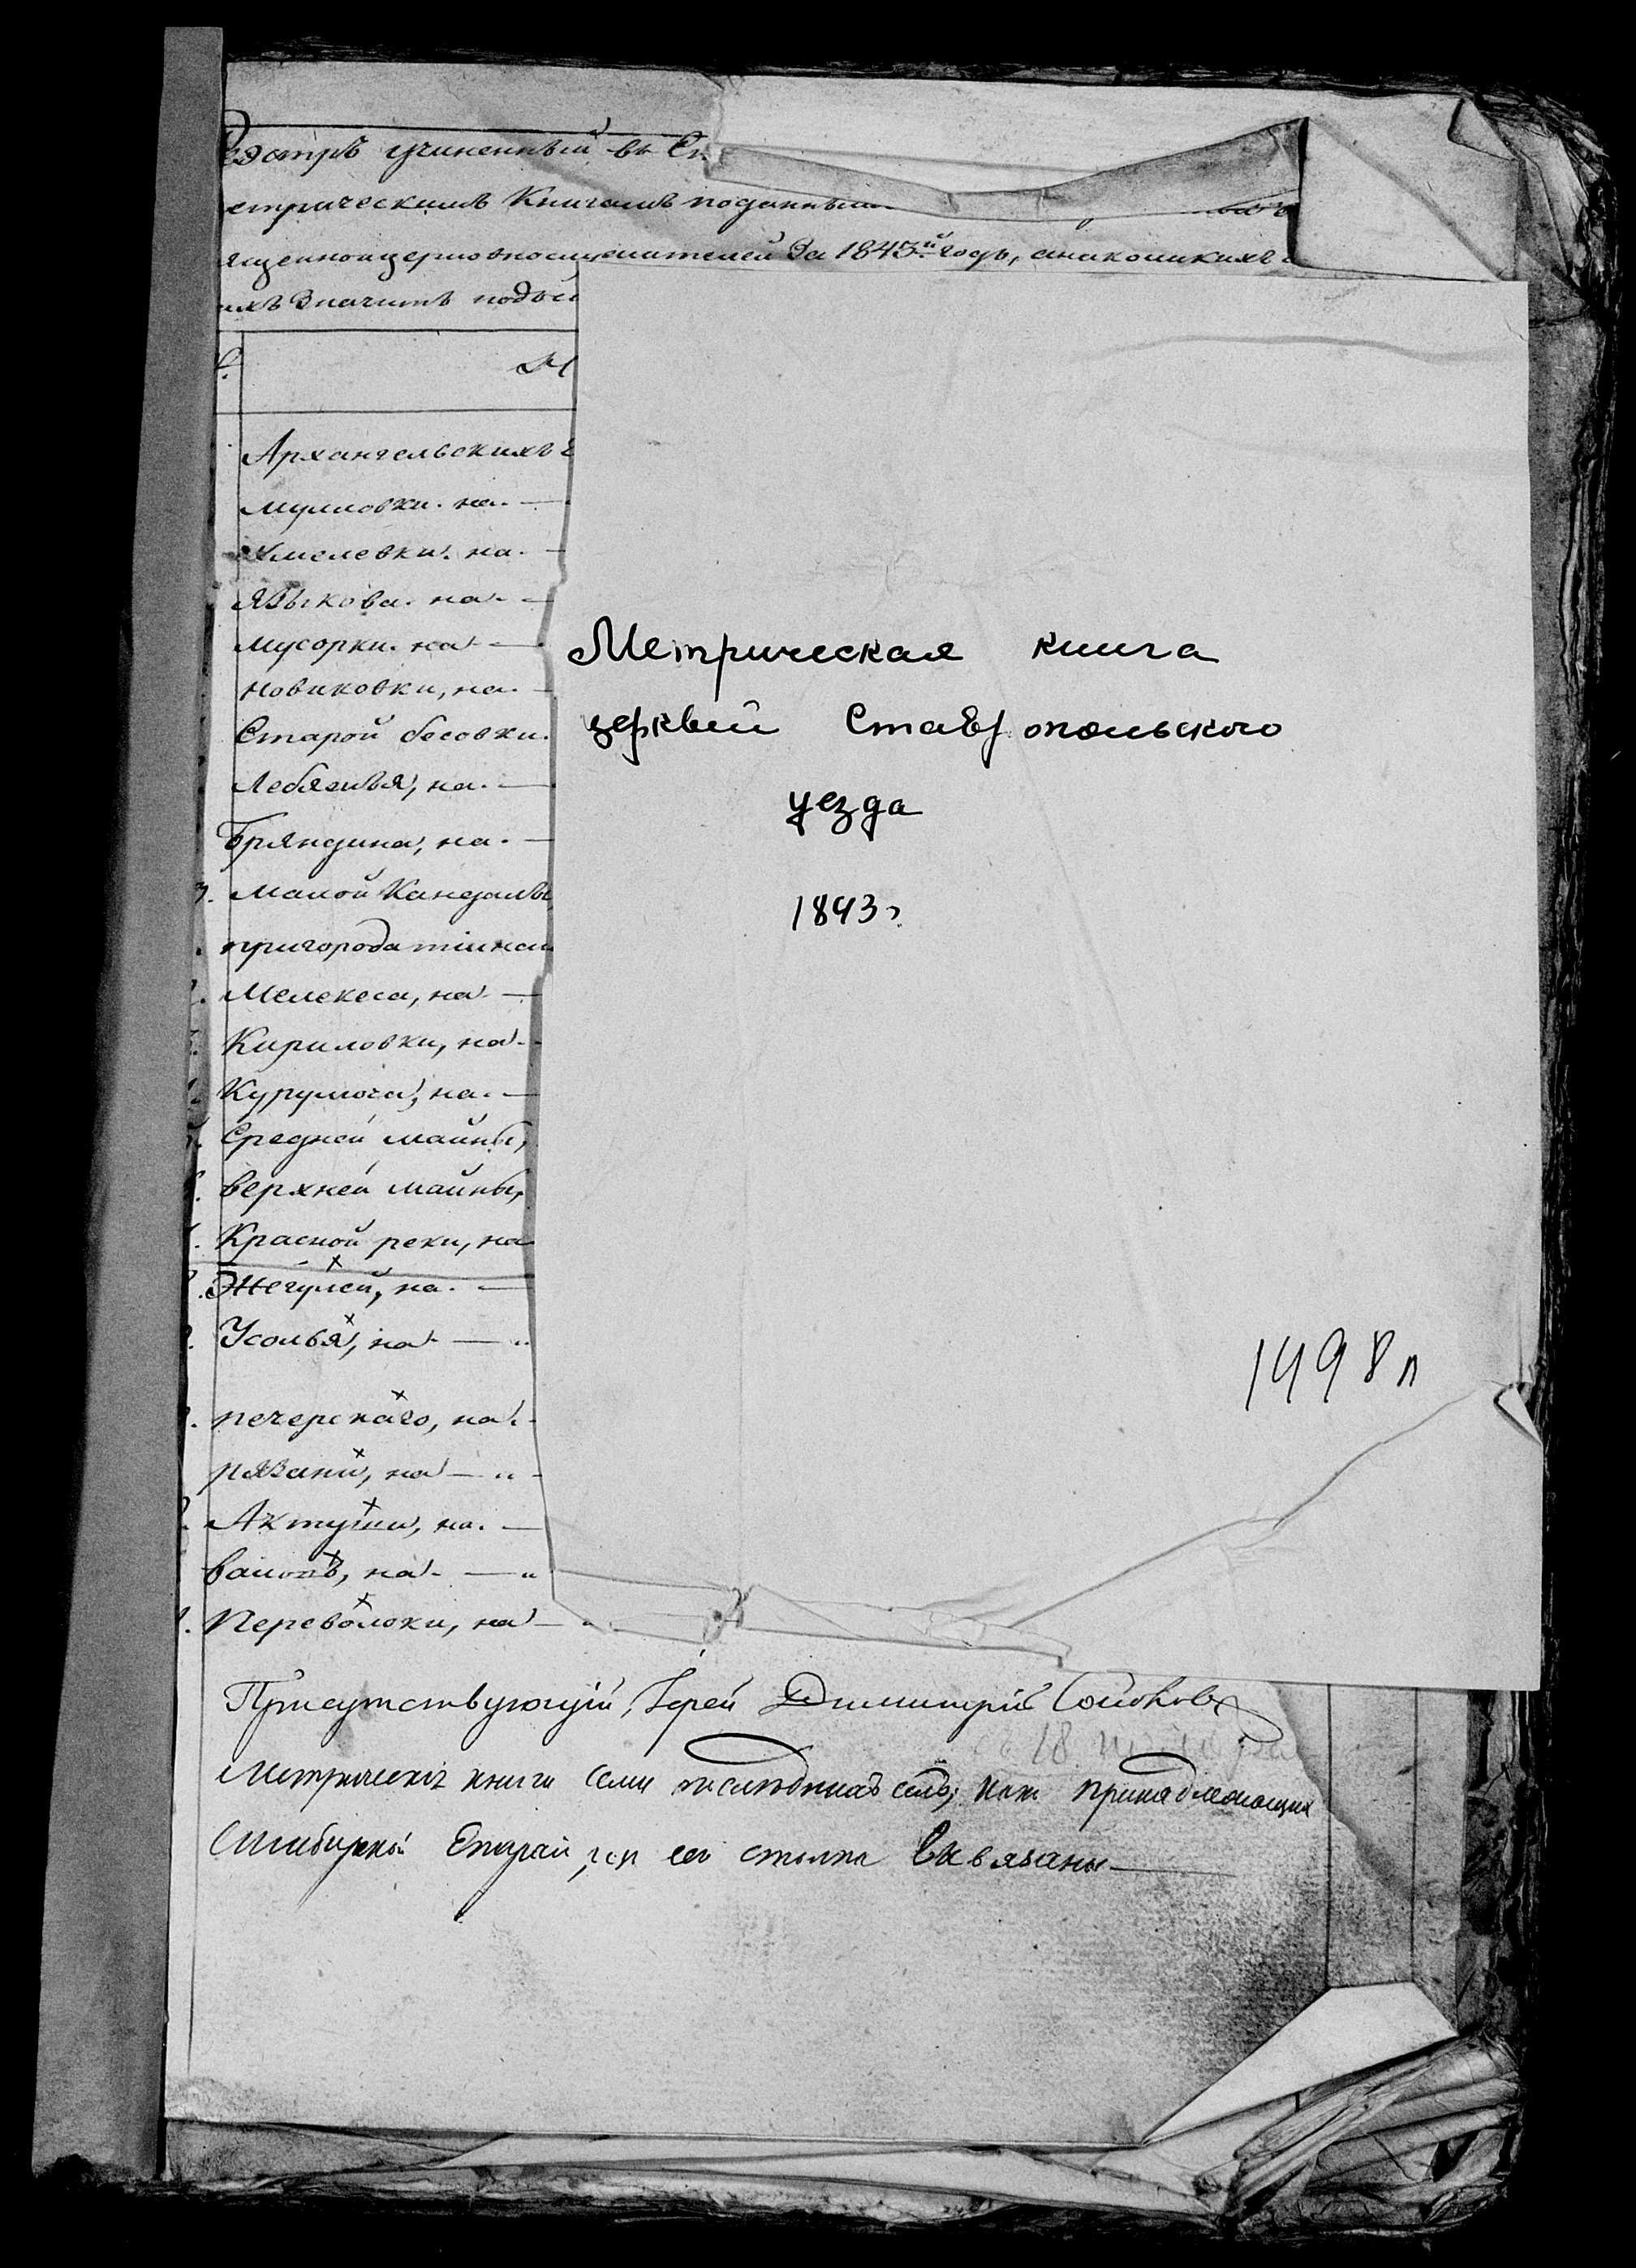 Реэстръ учиненный въ Ст
етрическимъ Книгамъ поданнымъ
ященноцерковнослужителей За 1843й годъ, снаколикихъ
ихъ Значитъ подъ
М
Архангельскихъ
мулловки. на. —
хмелевки. на. —
Языкова. на. —
мусорки. на —
новиковки, на. —
Старой бесовки.
Лебяжья, на. —
Бряндина, на. —
малой Кандалы
пригорода тiинска
Мелекеса, на —
Кириловки, на. -
Курумоча, на. —
Средней майны,
верхней майны,
Красной реки, на
Жегулей, на. —
Усолья, на — "
печерскаго, на. -
рязани, на — "
Актуши, на. —
валовъ, на. — "
Переволоки, на — "
Метрическая книга
церквей Ставропольского
уезда
1843г.
1498л
Присутствующiй, Iерей Димитрiй
Метрическiя книги семи последнихъ селъ, какъ принадлежащих
Симбирской Епархiи, изъ сего столпа Вывязаны —